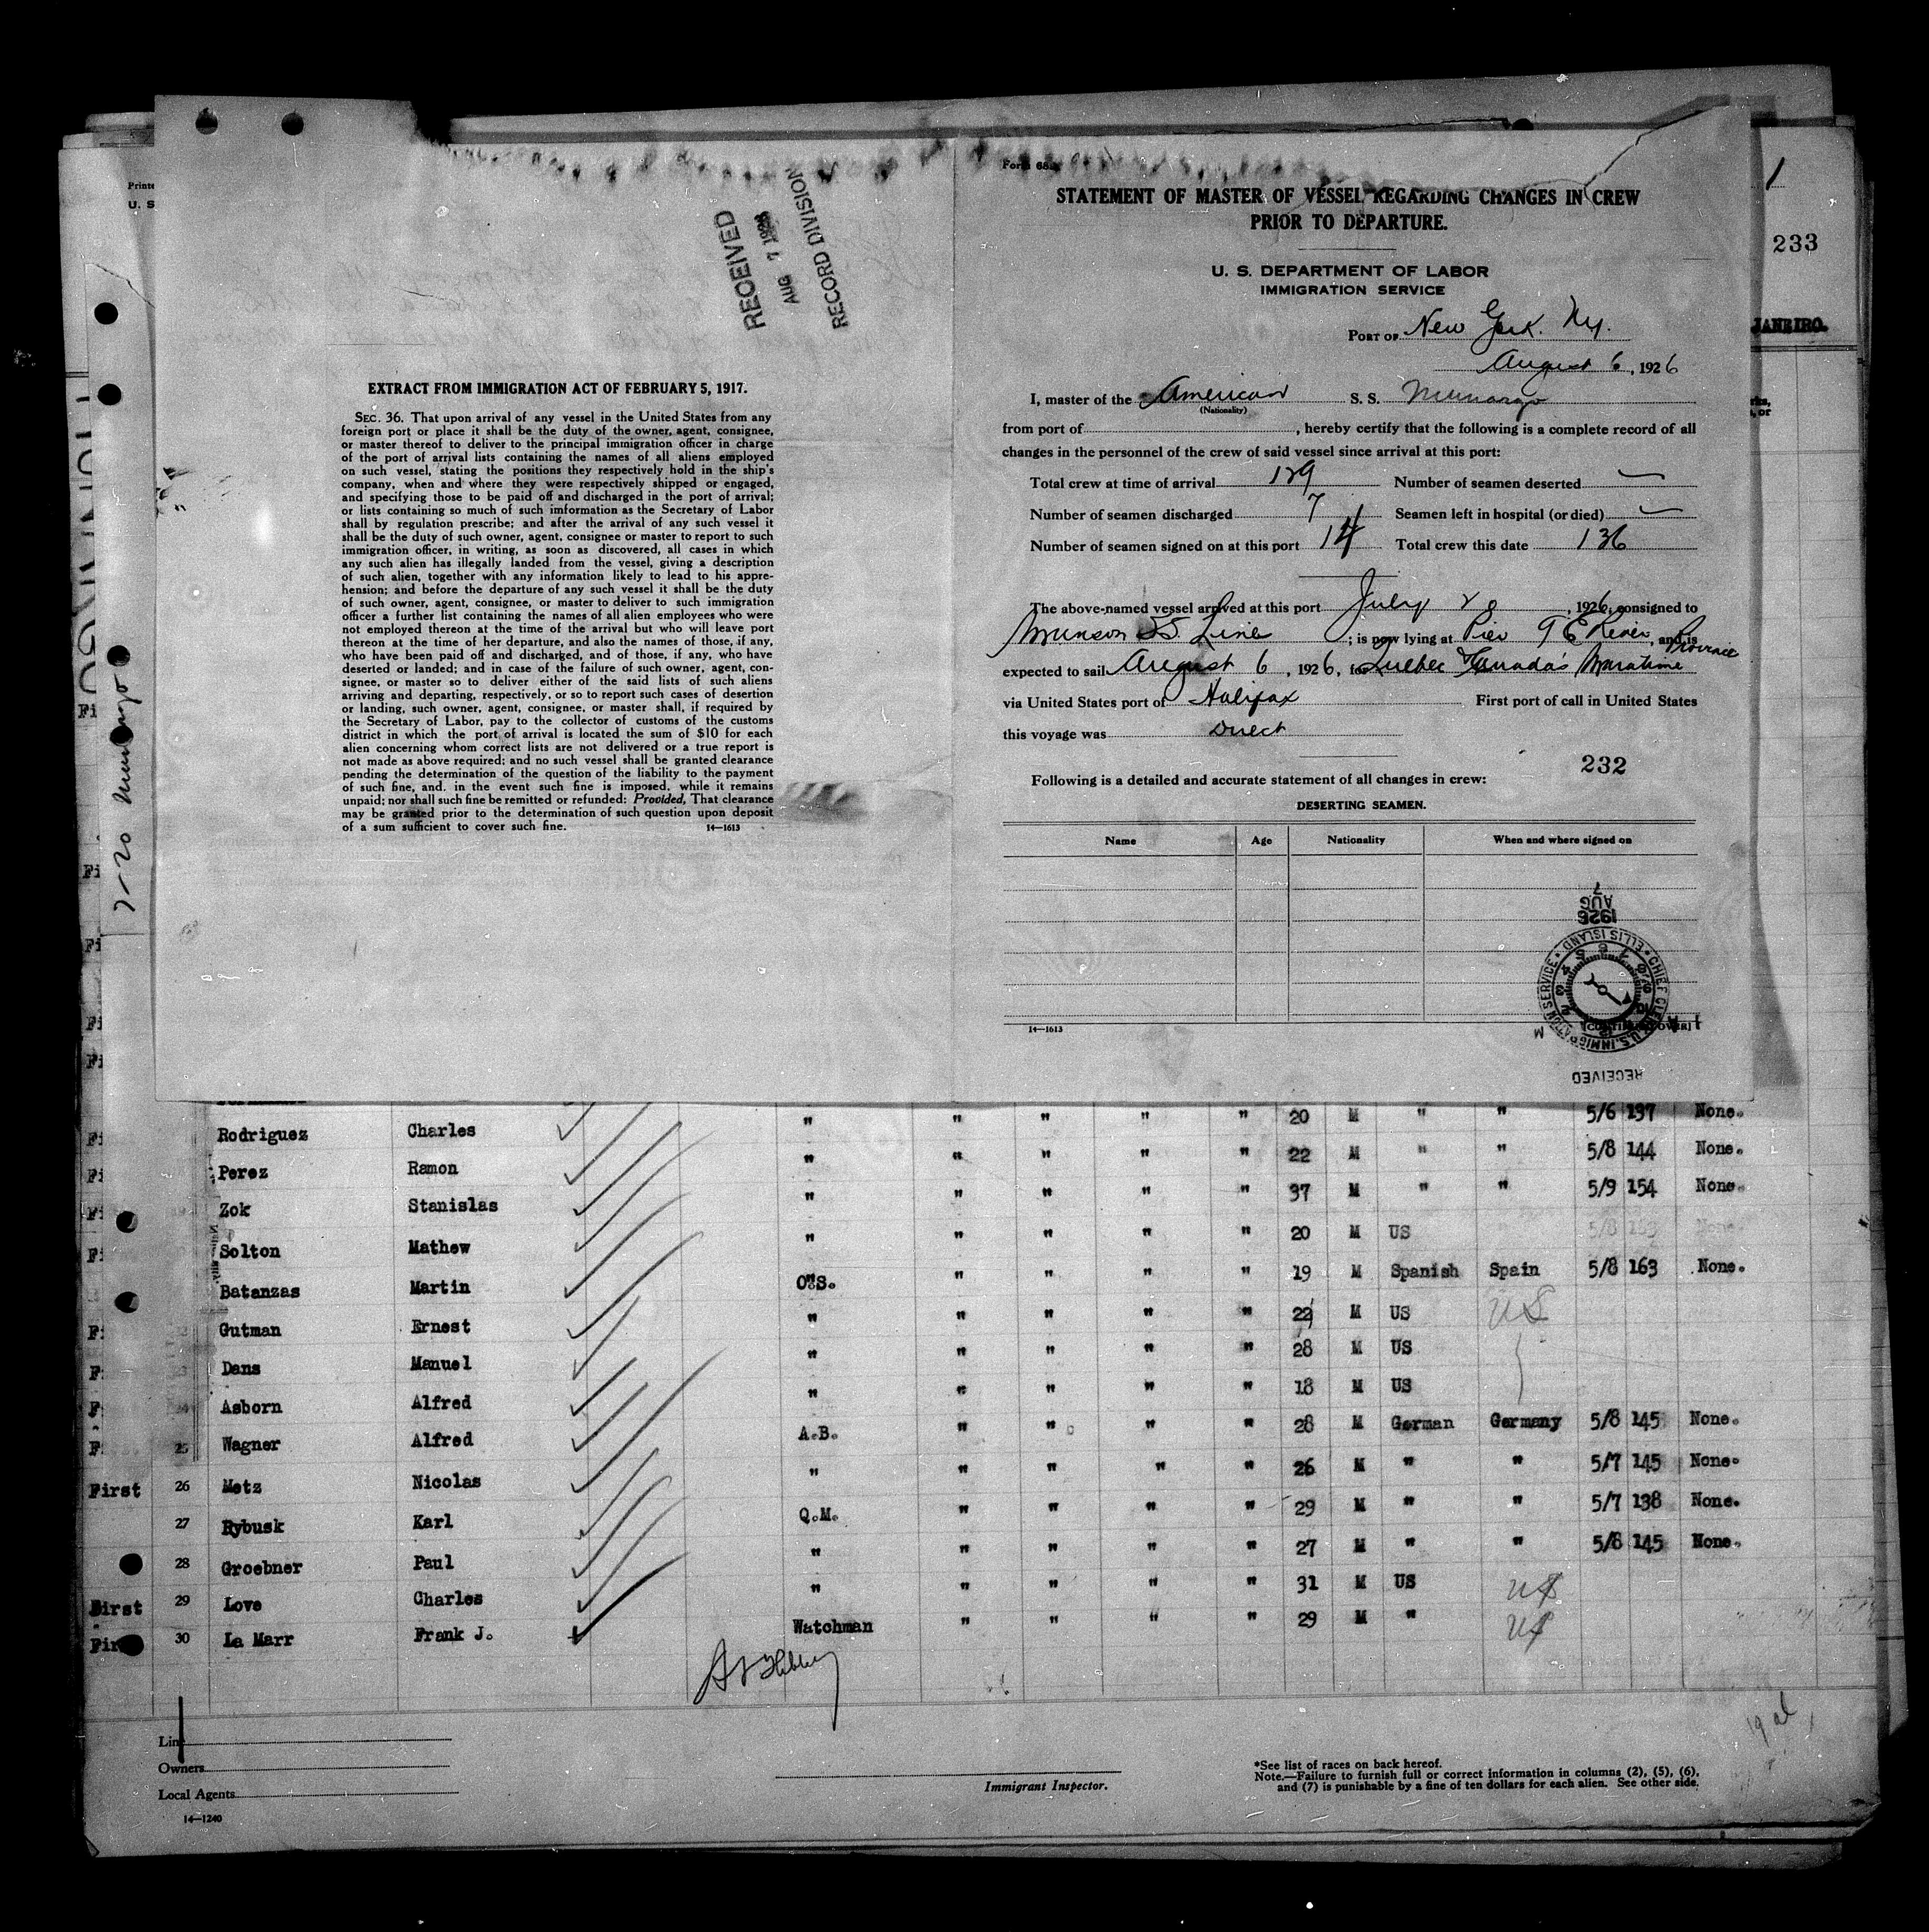 Printe
U. S
RECEIVED
AUG 7 1926
RECORD DIVISION
EXTRACT FROM IMMIGRATION ACT OF FEBRUARY 5, 1917.
SEC. 36. That upon arrival of any vessel in the United States from any
foreign port or place it shall be the duty of the owner, agent, consignee,
or master thereof to deliver to the principal immigration officer in charge
of the port of arrival lists containing the names of all aliens employed
on such vessel, stating the positions they respectively hold in the ship's
company, when and where they were respectively shipped or engaged,
and specifying those to be paid off and discharged in the port of arrival;
or lists containing so much of such imformation as the Secretary of Labor
shall by regulation prescribe; and after the arrival of any such vessel it
shall be the duty of such owner, agent, consignee or master to report to such
immigration officer, in writing, as soon as discovered, all cases in which
any such alien has illegally landed from the vessel, giving a description
of such alien, together with any information likely to lead to his appre-
hension; and before the departure of any such vessel it shall be the duty
of such owner, agent, consignee, or master to deliver to such immigration
officer a further list containing the names of all alien employees who were
not employed thereon at the time of the arrival but who will leave port
thereon at the time of her departure, and also the names of those, if any,
who have been paid off and discharged, and of those, if any, who have
deserted or landed; and in case of the failure of such owner, agent, con-
signee, or master so to deliver either of the said lists of such aliens
arriving and departing, respectively, or so to report such cases of desertion
or landing, such owner, agent, consignee, or master shall, if required by
the Secretary of Labor, pay to the collector of customs of the customs
district in which the port of arrival is located the sum of $10 for each
alien concerning whom correct lists are not delivered or a true report is
not made as above required; and no such vessel shall be granted clearance
pending the determination of the question of the liability to the payment
of such fine, and, in the event such fine is imposed, while it remains
unpaid; nor shall such fine be remitted or refunded: Provided, That clearance
may be granted prior to the determination of such question upon deposit
of a sum sufficient to cover such fine.
14—1613
7-20 Munargo
Form 68
STATEMENT OF MASTER OF VESSEL REGARDING CHANGES IN CREW
PRIOR TO DEPARTURE.
U. S. DEPARTMENT OF LABOR
IMMIGRATION SERVICE
PORT OF New York. Ny.
August 6, 1926
I, master of the American S. S. Munargo
(Nationality)
from port of , hereby certify that the following is a complete record of all
changes in the personnel of the crew of said vessel since arrival at this port:
Total crew at time of arrival 129 Number of seamen deserted —
Number of seamen discharged 7 Seamen left in hospital (or died) —
Number of seamen signed on at this port 14 Total crew this date 136
The above-named vessel arrived at this port July 20, 1926, consigned to
Munson SS. Line ; is now lying at Pier 9 E River, and is
expected to sail August 6, 1926, for Quebec & Canada's Maratime Province
via United States port of Halifax First port of call in United States
this voyage was Direct
232
Following is a detailed and accurate statement of all changes in crew:
DESERTING SEAMEN.
Name Age Nationality When and where signed on
14—1613
RECEIVED
CHIEF CLERK U.S. IMMIGRATION SERVICE • ELLIS ISLAND •
1926 AUG 7
1
233
JANEIRO.
" " " " " 20 M " " 5/6 137 None.
Rodriguez Charles " " " " " 22 M " " 5/8 144 None.
Perez Ramon " " " " " 37 M " " 5/9 154 None.
Zok Stanislas " " " " " 20 M US 5/8 163 None
Solton Mathew O.S. " " " " 19 M Spanish Spain 5/8 163 None.
Batanzas Martin " " " " " 22 M US US
Gutman Ernest " " " " " 28 M US
Dans Manuel " " " " " 18 M US
Asborn Alfred A.B. " " " " 28 M German Germany 5/8 145 None.
25 Wagner Alfred " " " " " 26 M " " 5/7 145 None.
First 26 Metz Nicolas Q.M. " " " " 29 M " " 5/7 138 None.
27 Rybusk Karl " " " " " 27 M " " 5/8 145 None.
28 Groebner Paul " " " " " 31 M US US
First 29 Love Charles Watchman " " " " 29 M " US
First 30 La Marr Frank J.
Line
Owners
Local Agents
14—1240
Immigrant Inspector.
*See list of races on back hereof.
Note.—Failure to furnish full or correct information in columns (2), (5), (6),
and (7) is punishable by a fine of ten dollars for each alien. See other side.